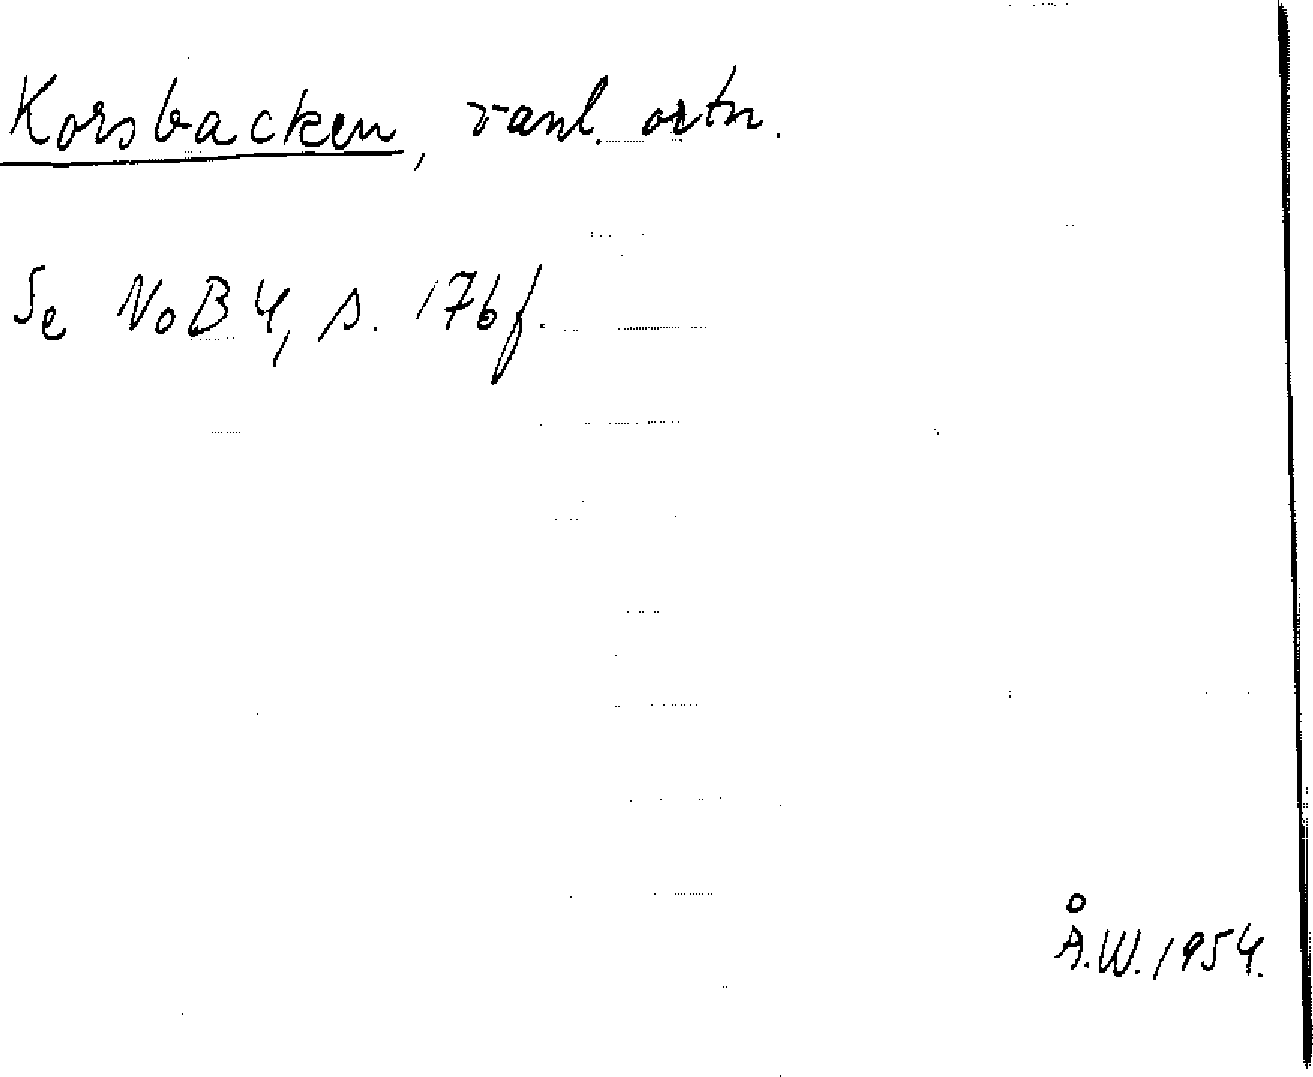 Korsbacken, vanl. ortn.
Se NoB 4, s. 176 f.
Å.W. 1954.